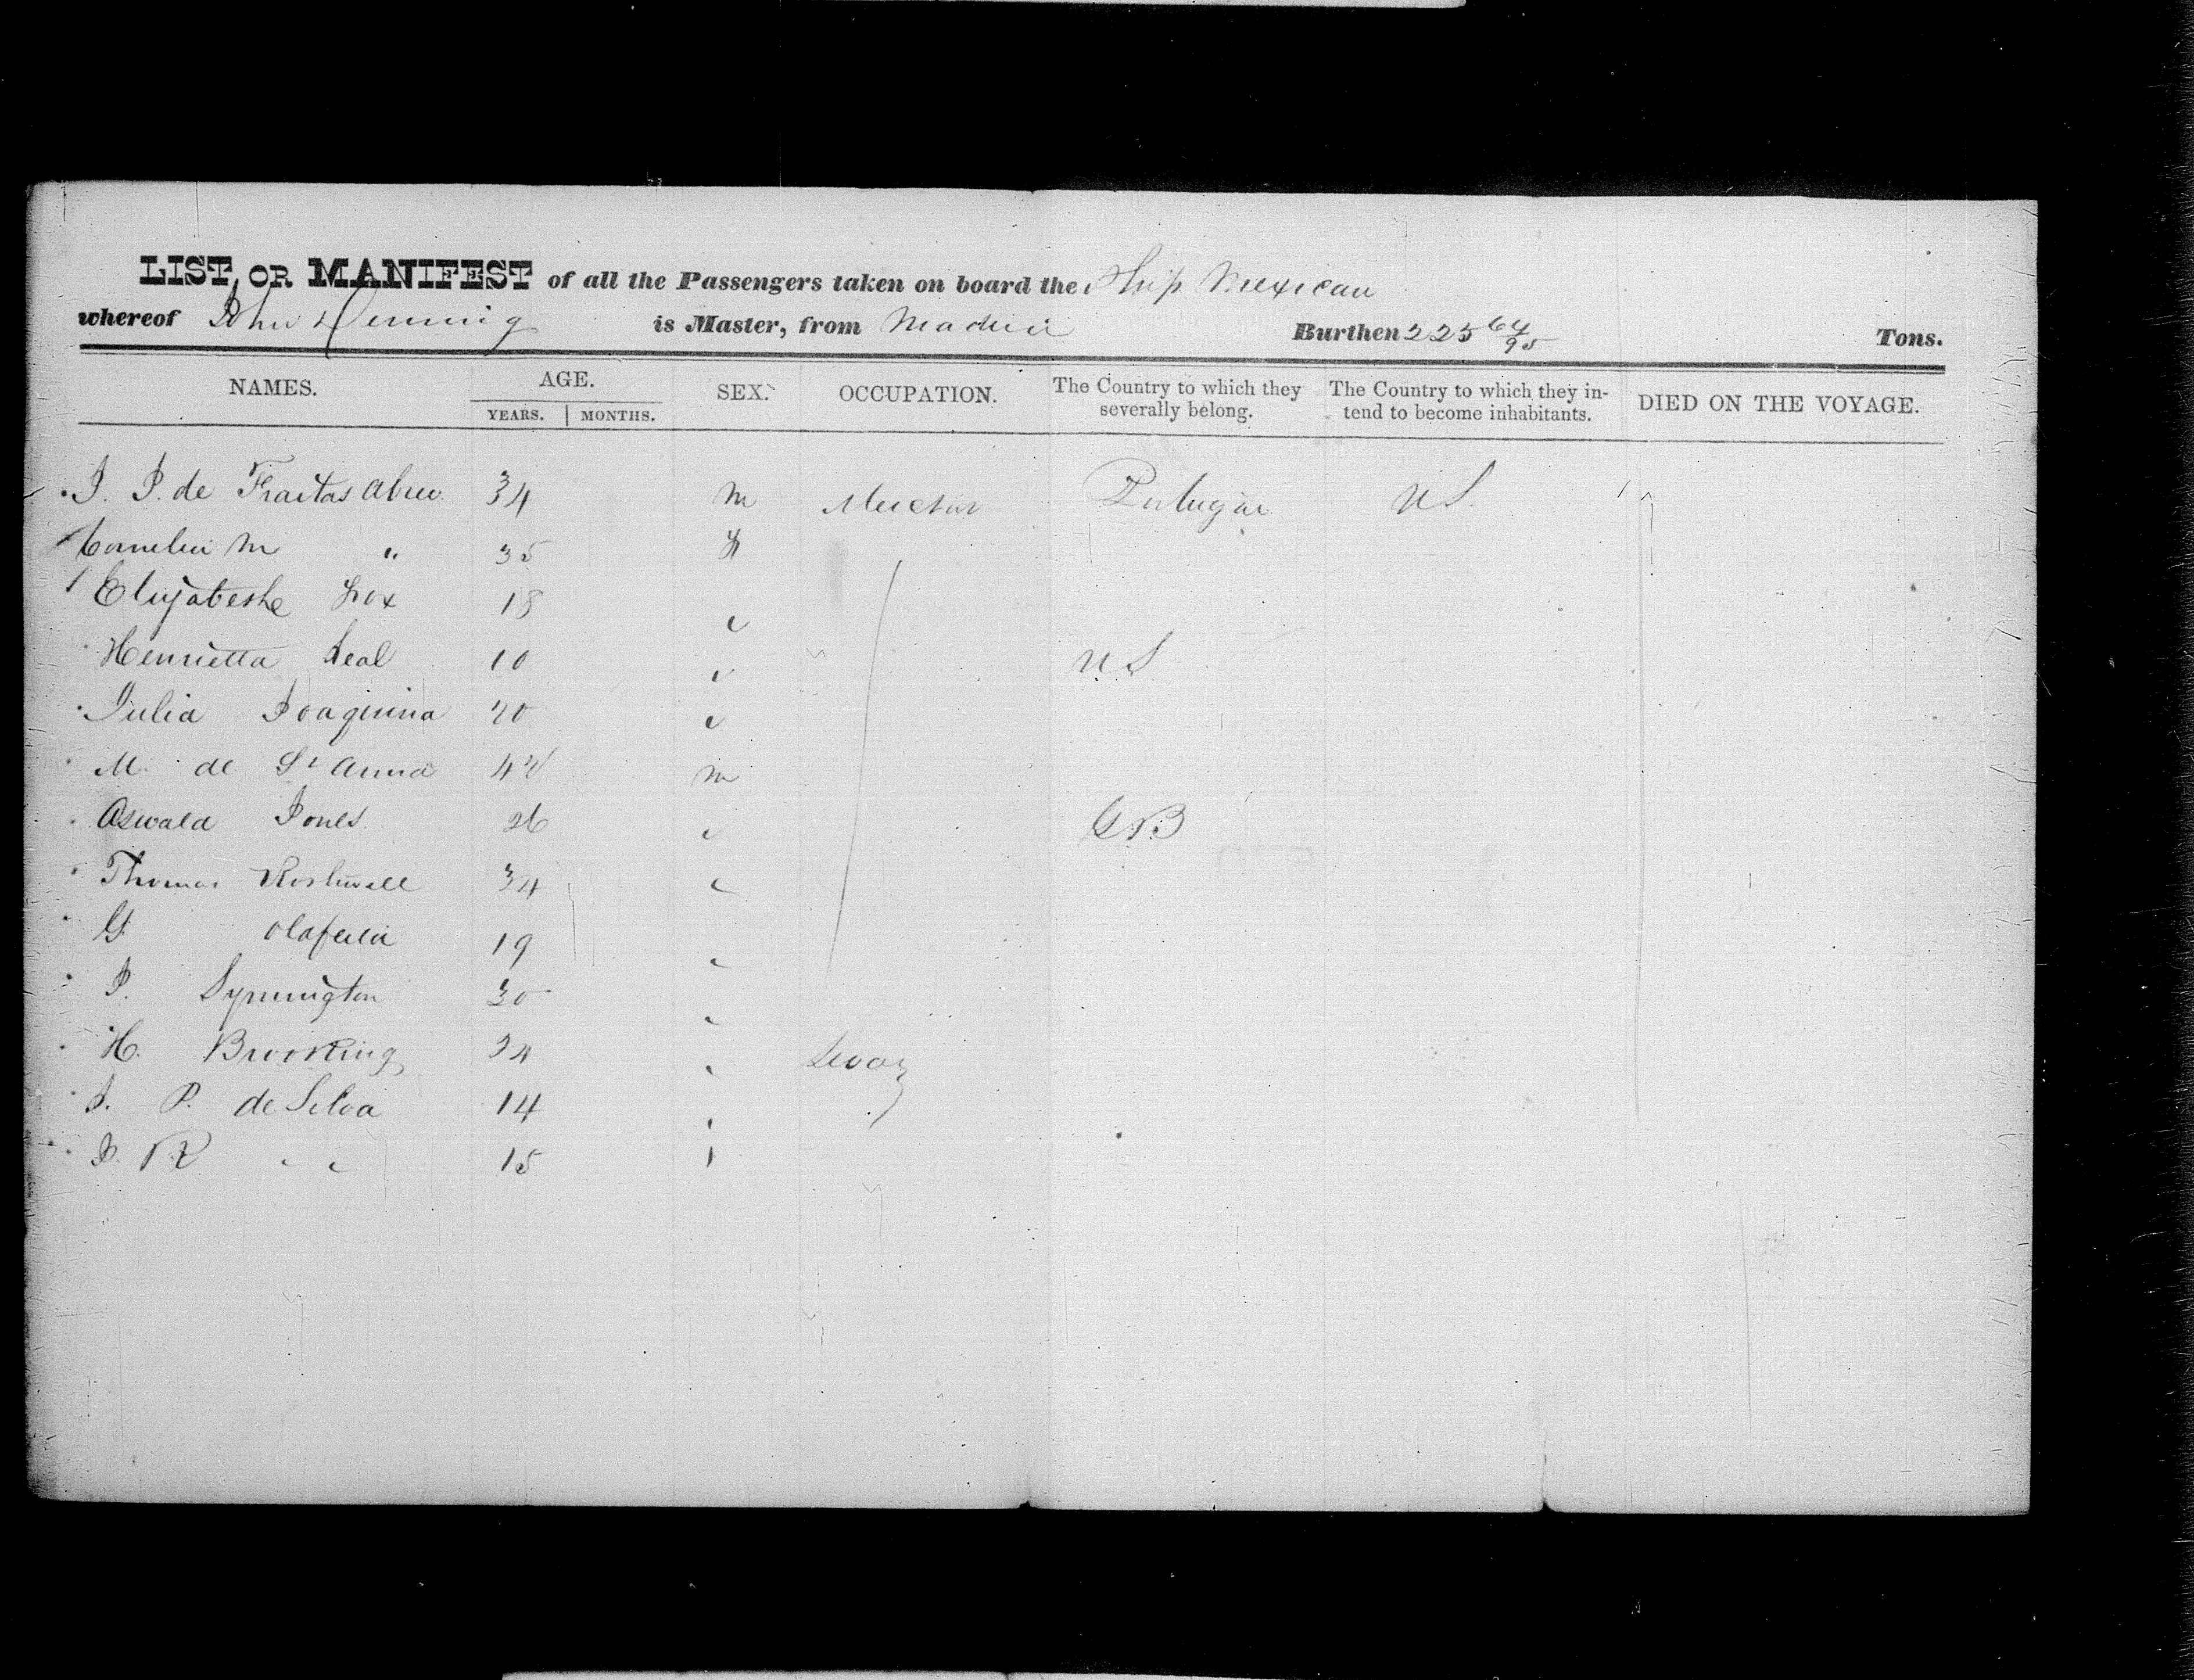 LIST, OR MANIFEST of all the Passengers taken on board the Ship Mexican
whereof John Denning is Master, from Madeira Burthen 225 64/95 Tons.
NAMES. AGE. SEX. OCCUPATION. The Country to which they severally belong. The Country to which they intend to become inhabitants. DIED ON THE VOYAGE.
YEARS. MONTHS.
J. J. de Fraitas Abreu 34 m Portugal US
Cornelia M " 35 f
Fox 18 "
Henrietta Leal 10 " US
Julia Joaquina 20 "
M. de St Anna 42 m
Oswald Jones 26 " GB
Thomas 34 "
G 19 "
J. Symington 30 "
H. Brooking 24 "
J. P. de Silva 14 "
J. R " " 15 "